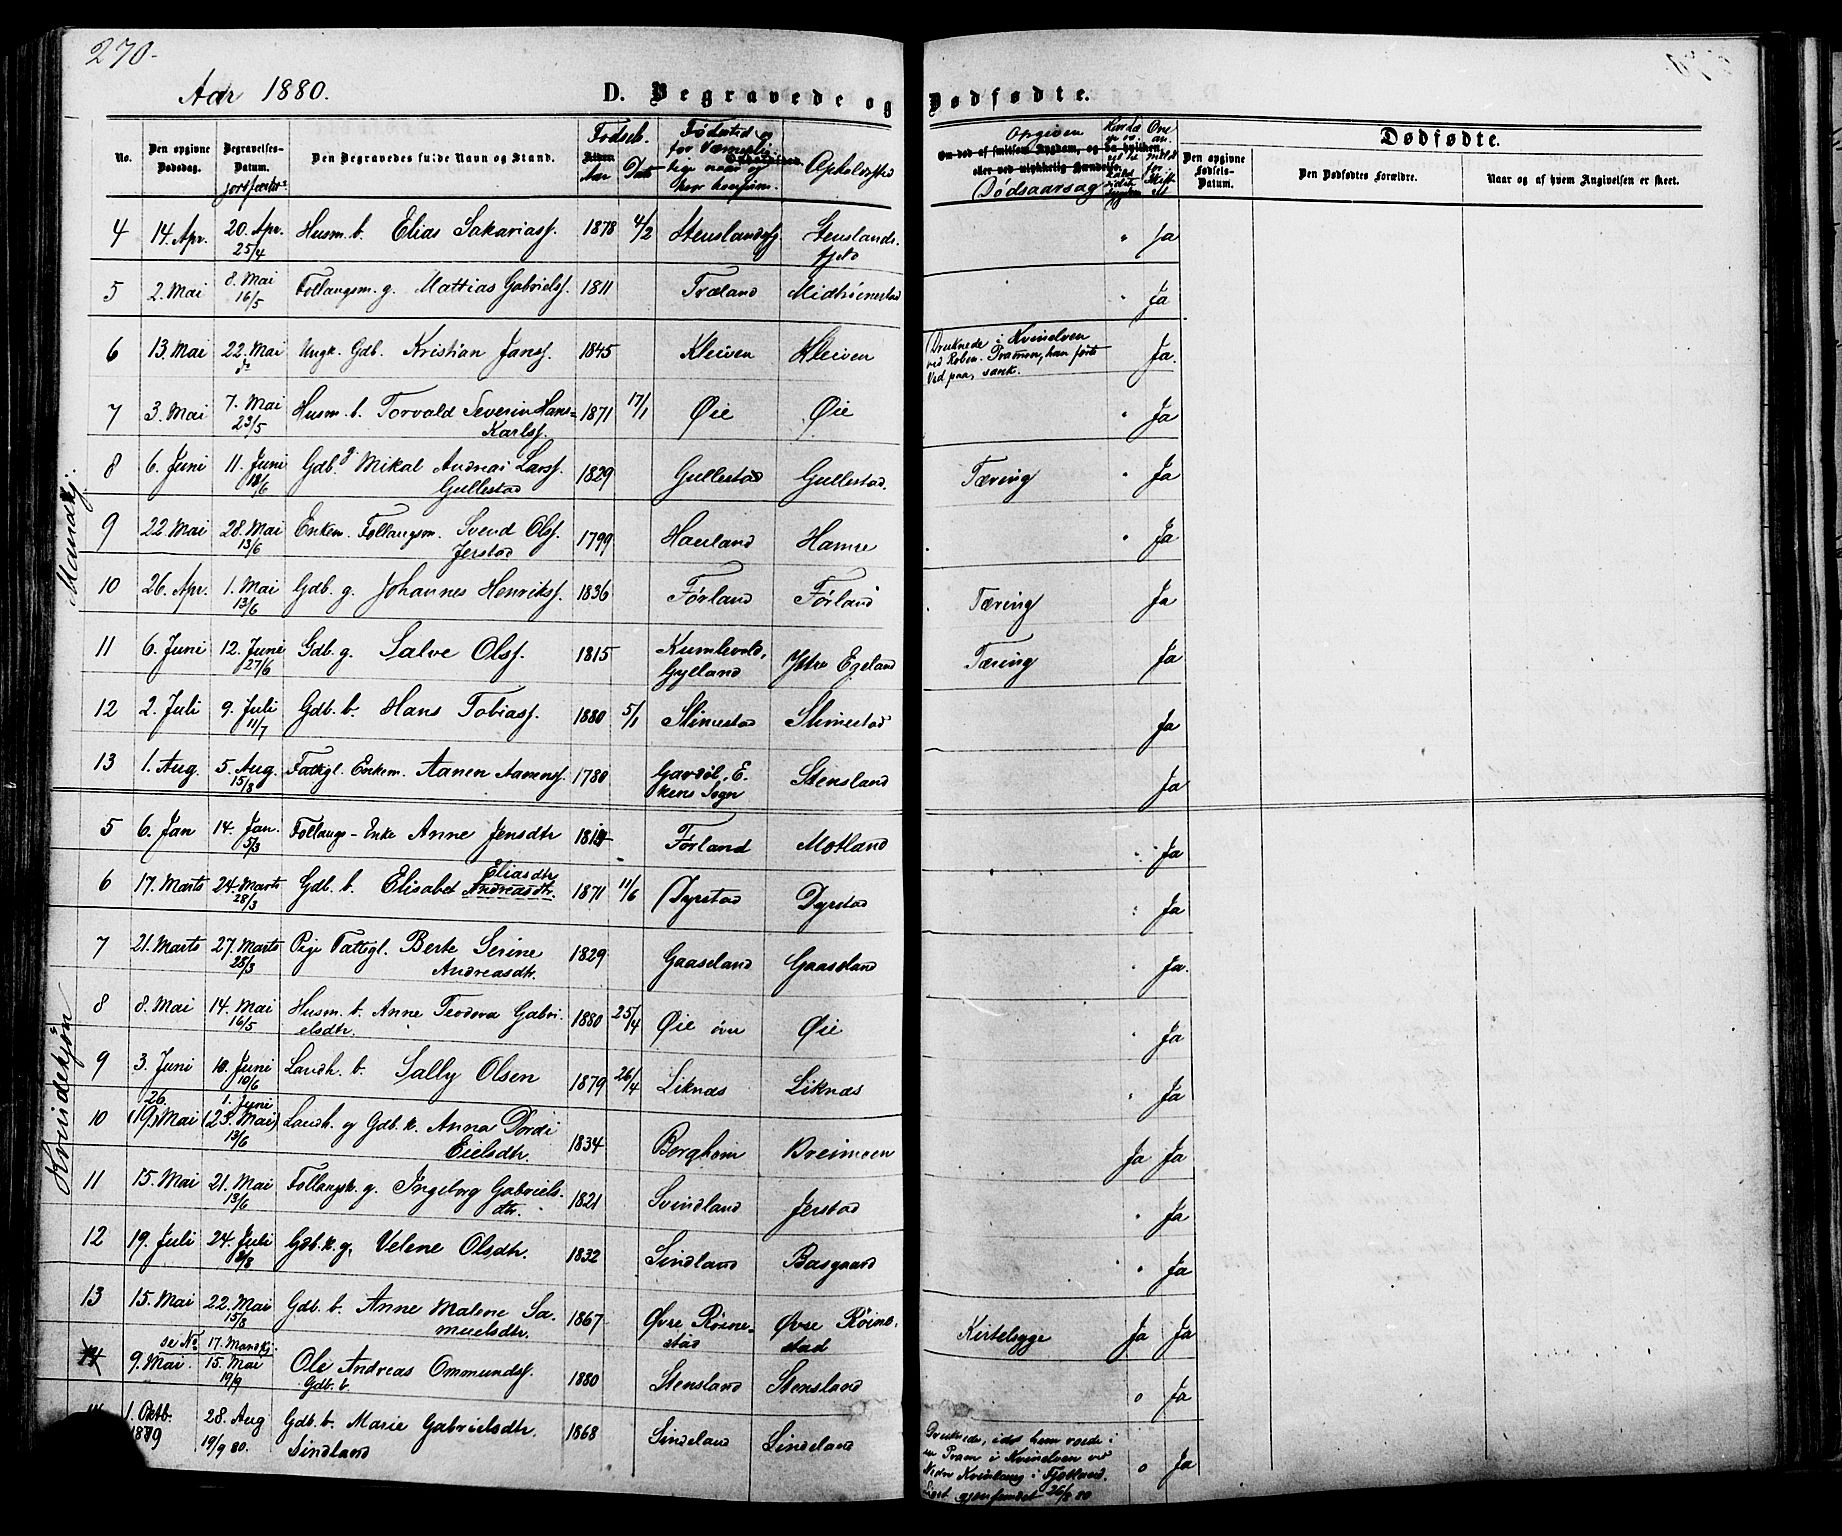 270.
Aar 1880.
D. Begravede og Dødfødte.
No.
Den opgivne Dødsdag.
Begravelses-Datum.
jordfæstet
Den Begravedes fulde Navn og Stand.
Fødseb.
Aar
Dat
Fødested og
Opholdssted
Opgiven
Om død af smitsom Sygdom, og da hvilken,
eller ved ulykkelig Hændelse
Dødsaarsag
Dødfødte.
Den opgivne Fødsels-Datum.
Den Dødfødtes Forældre.
Naar og af hvem Angivelsen er skeet.
Mandkj.
4 14. Apr. 20. Apr. 25/4 Husm. b. Elias Sakariass. 1878 4/2 Stenslandsfj Stenslands-fjeld " Ja
5 2. Mai 8. Mai 16/5 Follaugsm. g. Mattias Gabriels. 1811 Træland Midtrøinestad " Ja
6 13. Mai 22. Mai do Ungk. Gdb. Kristian Jans. 1845 Kleiven Kleiven Druknede i Kvinelven Ja.
ved Roben. Prammen, han førte
Ved paa, sank.
7 3. Mai 7. Mai 23/5 Husm. b. Torvald Severin Hans= 1871 17/1 Øie Øie " Ja
Karls.
8 6. Juni 11. Juni 13/6 Gdb. g. Mikal Andreas Lars. 1829 Gullestad Gullestad. Tæring " Ja
Gullestad
9 22. Mai 28. Mai 13/6 Enkem. Follaugsm. Svend Ols. 1799 Hauland Hamre " Ja
Jerstad
10 26. Apr. 1. Mai 13/6 Gdb. g. Johannes Henriks. 1836 Førland Førland Tæring Ja
11 6. Juni 12. Juni 27/6 Gdb. g. Salve Ols. 1815 Kumlevold, Gylland Ytre Egeland Tæring Ja
12 2. Juli 9. Juli 11/7 Gdb. b. Hans Tobias. 1880 5/1 Slimestad Slimestad Ja
13 1. Aug. 5. Aug. 15/8 Fattigl. Enkem. Aanen Aanens. 1780 Gavdøl, E-kens Sogn Stensland Ja
Kvindekjøn
5 6. Jan 14. Jan. 5/3 Follaugs-Enke Anne Jensdtr Førland Motland " Ja
6 17. Marts 24. Marts 28/3 Gdb. b. Elisabet Eliasdtr Andreasdtr. 1871 11/6 Dyrstad Dyrstad " Ja
7 21. Marts 27. Marts 28/3 Pige Fattigl. Berte Serine 1829 Gaaseland Gaaseland " Ja.
Andreasdtr.
8 8. Mai 14. Mai 16/5 Husm. b. Anne Teodora Gabri- 1880 25/4 Øie øvre Øie " Ja
elsdtr.
9 3. Juni 10. Juni 10/6 Landh. b. Sally Olsen 1879 26/4 Liknæs Liknæs " Ja
26. 1. Juni
10 (19.) Mai (25. Mai) 13/6 Landh. og Gdb. k. Anna Dordi 1834 Berghom Breimoen Ja Ja
Eielsdtr.
11 15. Mai 21. Mai 13/6 Follaugsk. g. Ingeborg Gabriels- 1821 Svindland Jerstad " Ja
dtr.
12 19. Juli 24. Juli 8/8 Gdb. k. g. Velene Olsdtr. 1832 Sindland Basgaard " Ja
13 15. Mai 22. Mai 15/8 Gdb. b. Anne Malene Sa- 1867 Øvre Røine-stad Øvre Røine-stad Kirtelsyge Ja Ja
muelsdtr.
se No 17. Mandkj.
14 9. Mai. 15. Mai 19/9 Ole Andreas Ommunds. 1880 Stensland Stensland o Ja
Gdb. b.
1. Oktb. 1879 28. Aug 19/9 80. Gdb. b. Marie Gabrielsdtr. 1868 Sindeland Sindeland o Ja
Sindland
Druknede, idet hun roede i
en Pram i Kvinelven ved
Nedre Kvinlaug i Fjotland.
Liget gjenfundet 26/8 80